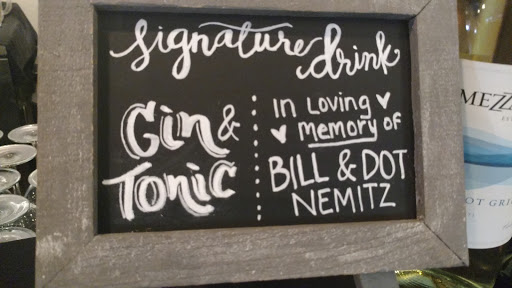 signature drink
Gin &
Tonic
In Loving
Memory of
BILL & DOT
NEMITZ
MEZZ
OT GRI